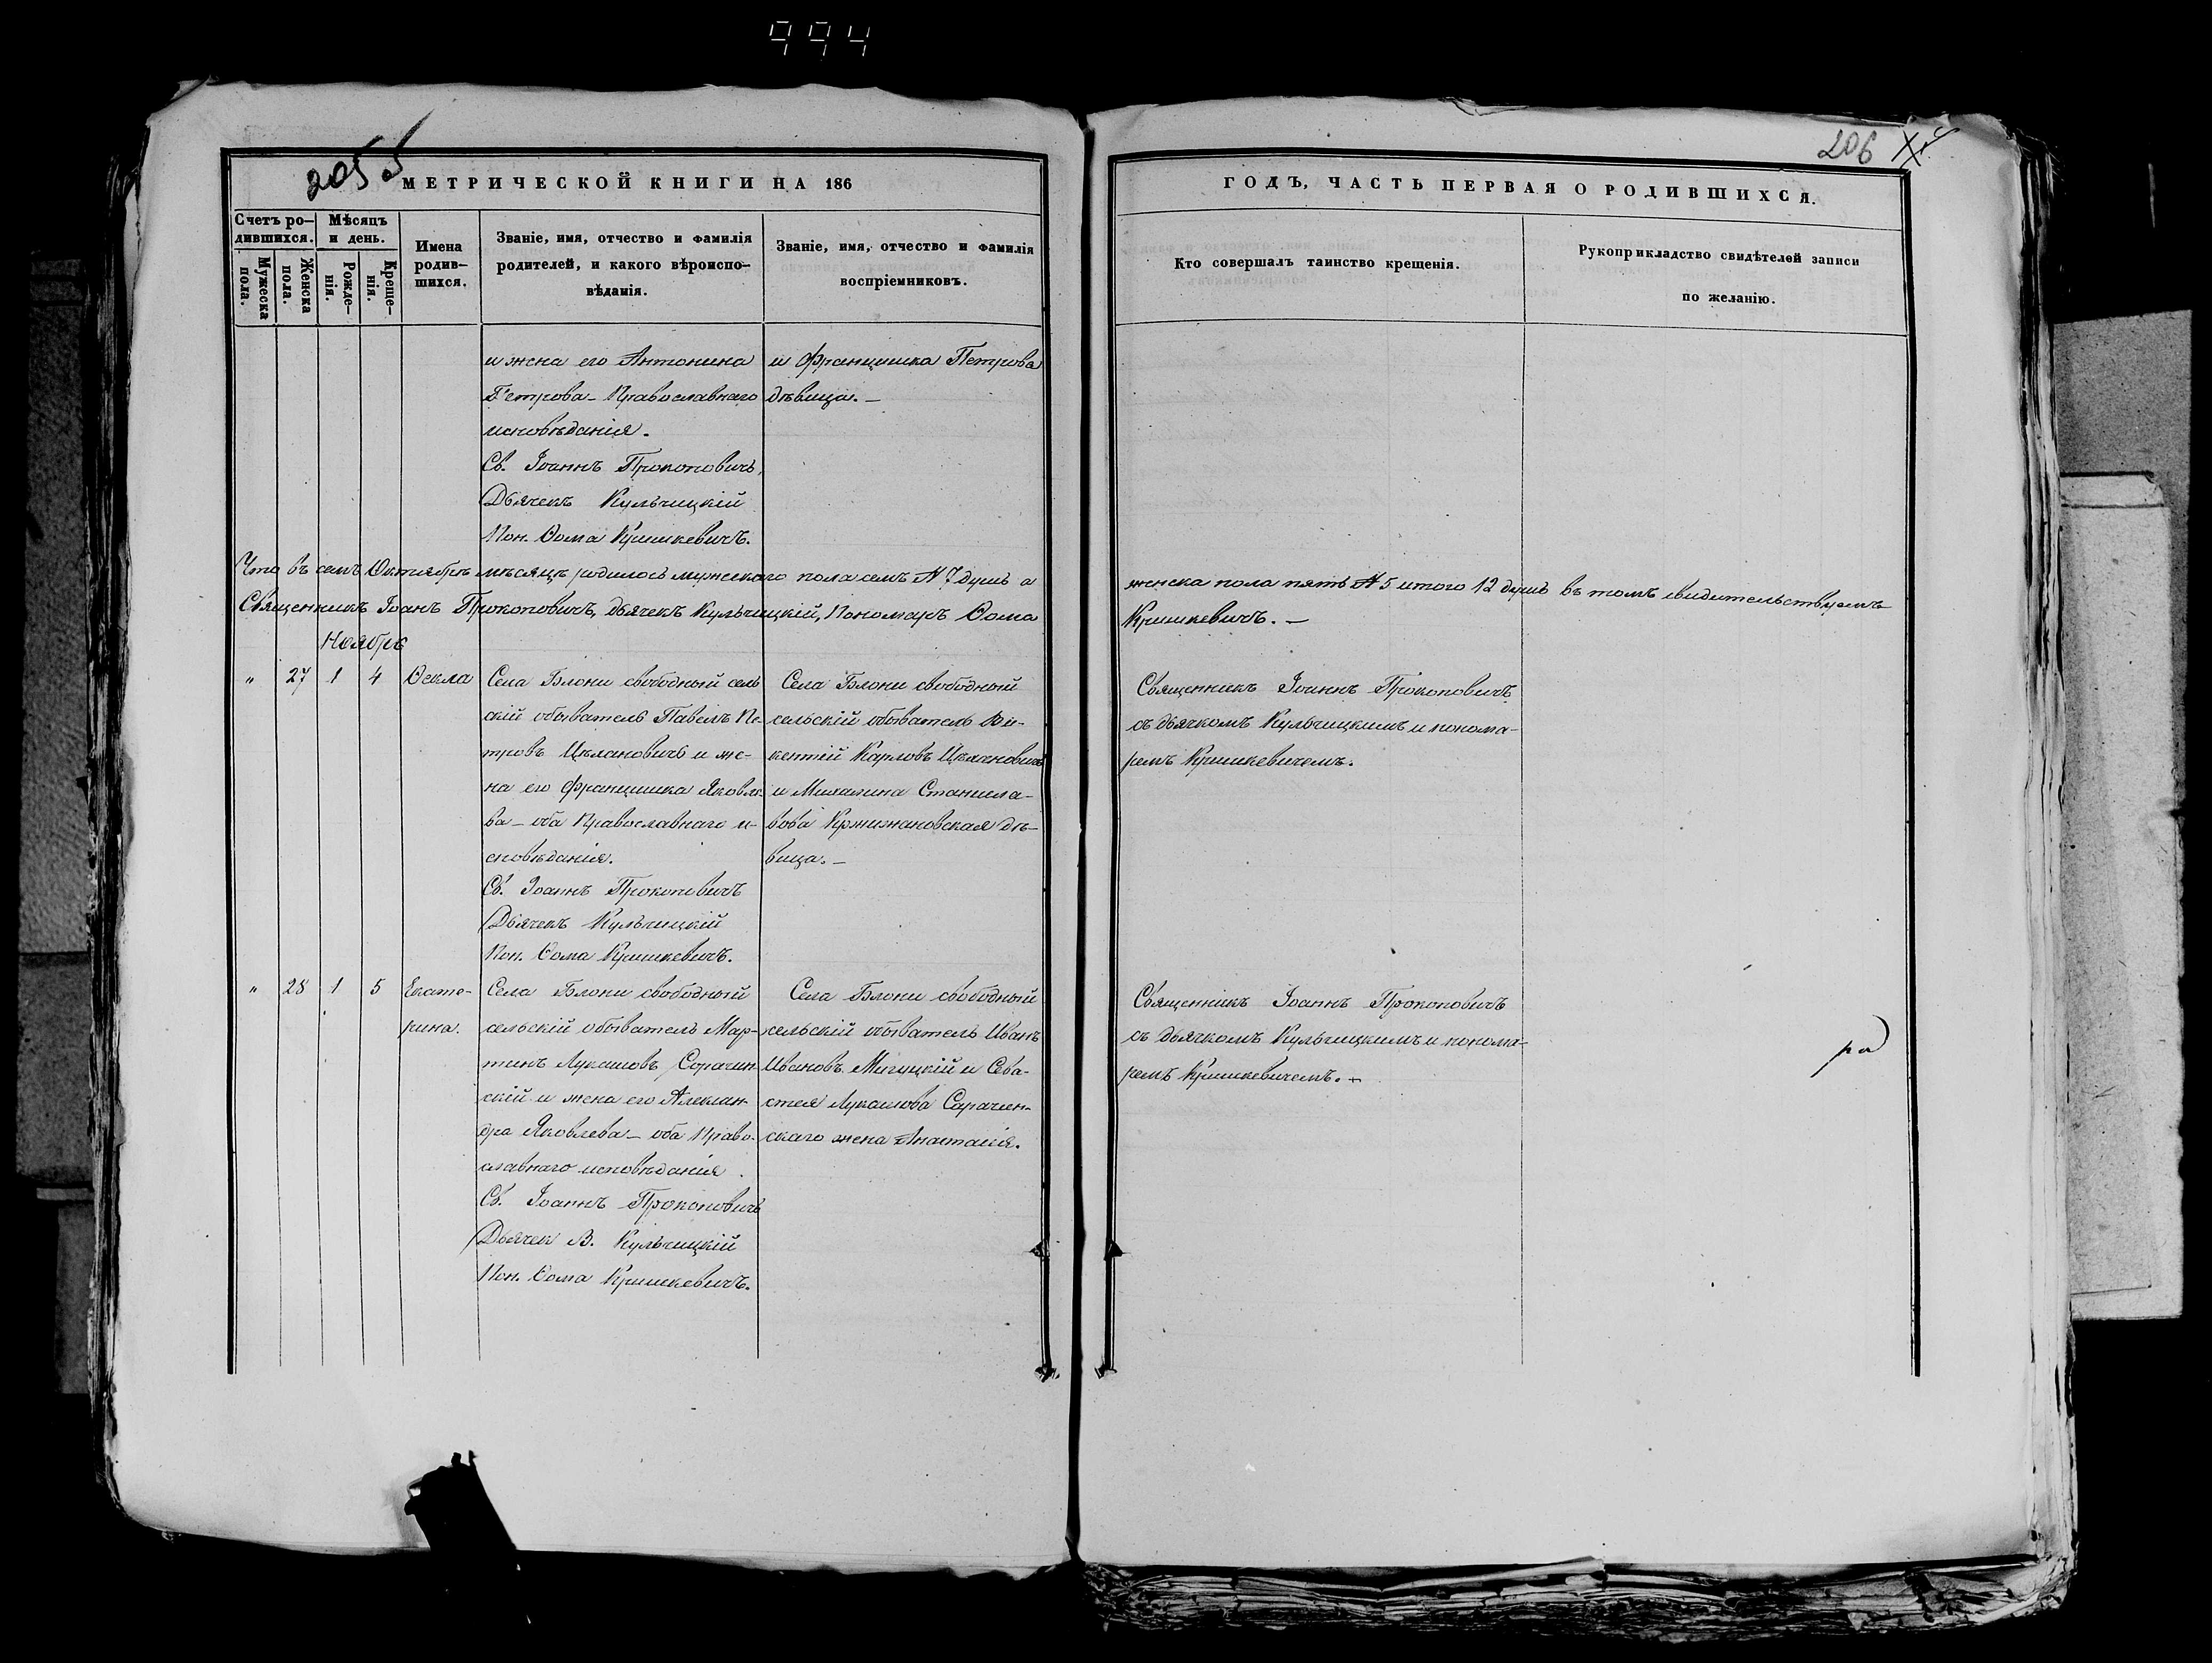 994
205
206
МЕТРИЧЕСКОЙ КНИГИ НА 186
ГОДЪ, ЧАСТЬ ПЕРВАЯ О РОДИВШИХСЯ.
Счетъ ро-
дившихся.
Мужеска
пола.
Женска
пола.
Мѣсяцъ
и день.
Рожде-
нія.
Креще-
нія.
Имена
родив-
шихся.
Званіе, имя, отчество и фамилія
родителей, и какого вѣроиспо-
вѣданія.
Званіе, имя, отчество и фамилія
воспріемниковъ.
Кто совершалъ таинство крещенія.
Рукоприкладство свидѣтелей записи
по желанію.
и жена его Антонина
Петрова - Православнаго
исповѣданія.
Св. Іоаннъ Прокоповичъ,
Дьячекъ Кульчицкій
Пон. Ѳома Кришкевичъ.
и Францишка Петрова
дѣвица. -
Что въ семъ Октябрѣ мѣсяцѣ родилось мужескаго пола семь N 7 душъ а
женска пола пять N 5 итого 12 душъ въ томъ свидительствуемъ
Священникъ Іоанъ Прокоповичъ, дьячекъ Кульчицкій, Пономарь Ѳома
Кришкевичъ. -
Ноябрь
" 27 1 4 Ѳекла
Села Блони свободный сель
скій обыватель Павелъ Пе-
тровъ Цѣлановичъ и же-
на его Францишка Яковле-
ва - оба Православнаго и-
сповѣданія.
Св. Іоаннъ Прокоповичъ
Дьячекъ Кульчицкій
Пон. Ѳома Кришкевичъ.
Села Блони свободный
сельскій обыватель Ви-
кентій Карловъ Цѣлановичъ
и Михалина Станисла-
вова Кржижановская дѣ-
вица. -
Священникъ Іоаннъ Прокоповичъ
съ дьячкомъ Кульчицкимъ и понома-
ремъ Кришкевичемъ.
" 28 1 5 Екате-
рина.
Села Блони свободный
сельскій обыватель Мар-
тинъ Лукашовъ Сорачин
скій и жена его Алексан-
дра Яковлева - оба Право-
славнаго исповѣданія.
Св. Іоаннъ Прокоповичъ
Дьячек В. Кульчицкій
Пон. Ѳома Кришкевичъ.
Села Блони свободный
сельскій обыватель Иванъ
Ивановъ Мигуцкій и Сева-
стея Лукашова Сарачин-
скаго жена Анастасія.
Священникъ Іоаннъ Прокоповичъ
съ дьячкомъ Кульчицкимъ и понома-
ремъ Кришкевичемъ. -